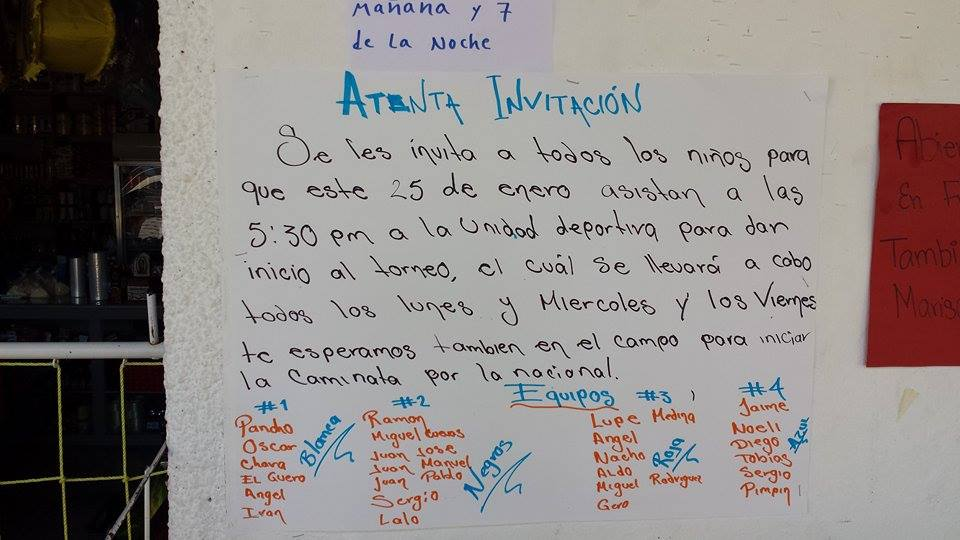 Mañana y 7
de La Noche
ATENTA INVITACIÓN
Se les invita a todos los niños para
que este 25 de enero asistan a las
5:30 pm a la Unidad deportiva para dar
inicio al torneo, el cuál se llevará a cabo
todos los lunes y Miercoles y los Viernes
te esperamos tambien en el campo para iniciar
la Caminata por la nacional.
Equipos
#1
Pancho
Oscar
Chava
EL Guero
Angel
Ivan
Blanca
#2
Ramon
Miguel
Juan Jose
Juan Manuel
Juan Pablo
Sergio
Lalo
Negros
#3
Lupe Medina
Angel
Nacho
ALdo
Miguel Rodriguez
Gero
Roja
#4
Jaime
Noeli
Diego
Tobias
Sergio
Pimpin
Azul
En
Tambi
Maris